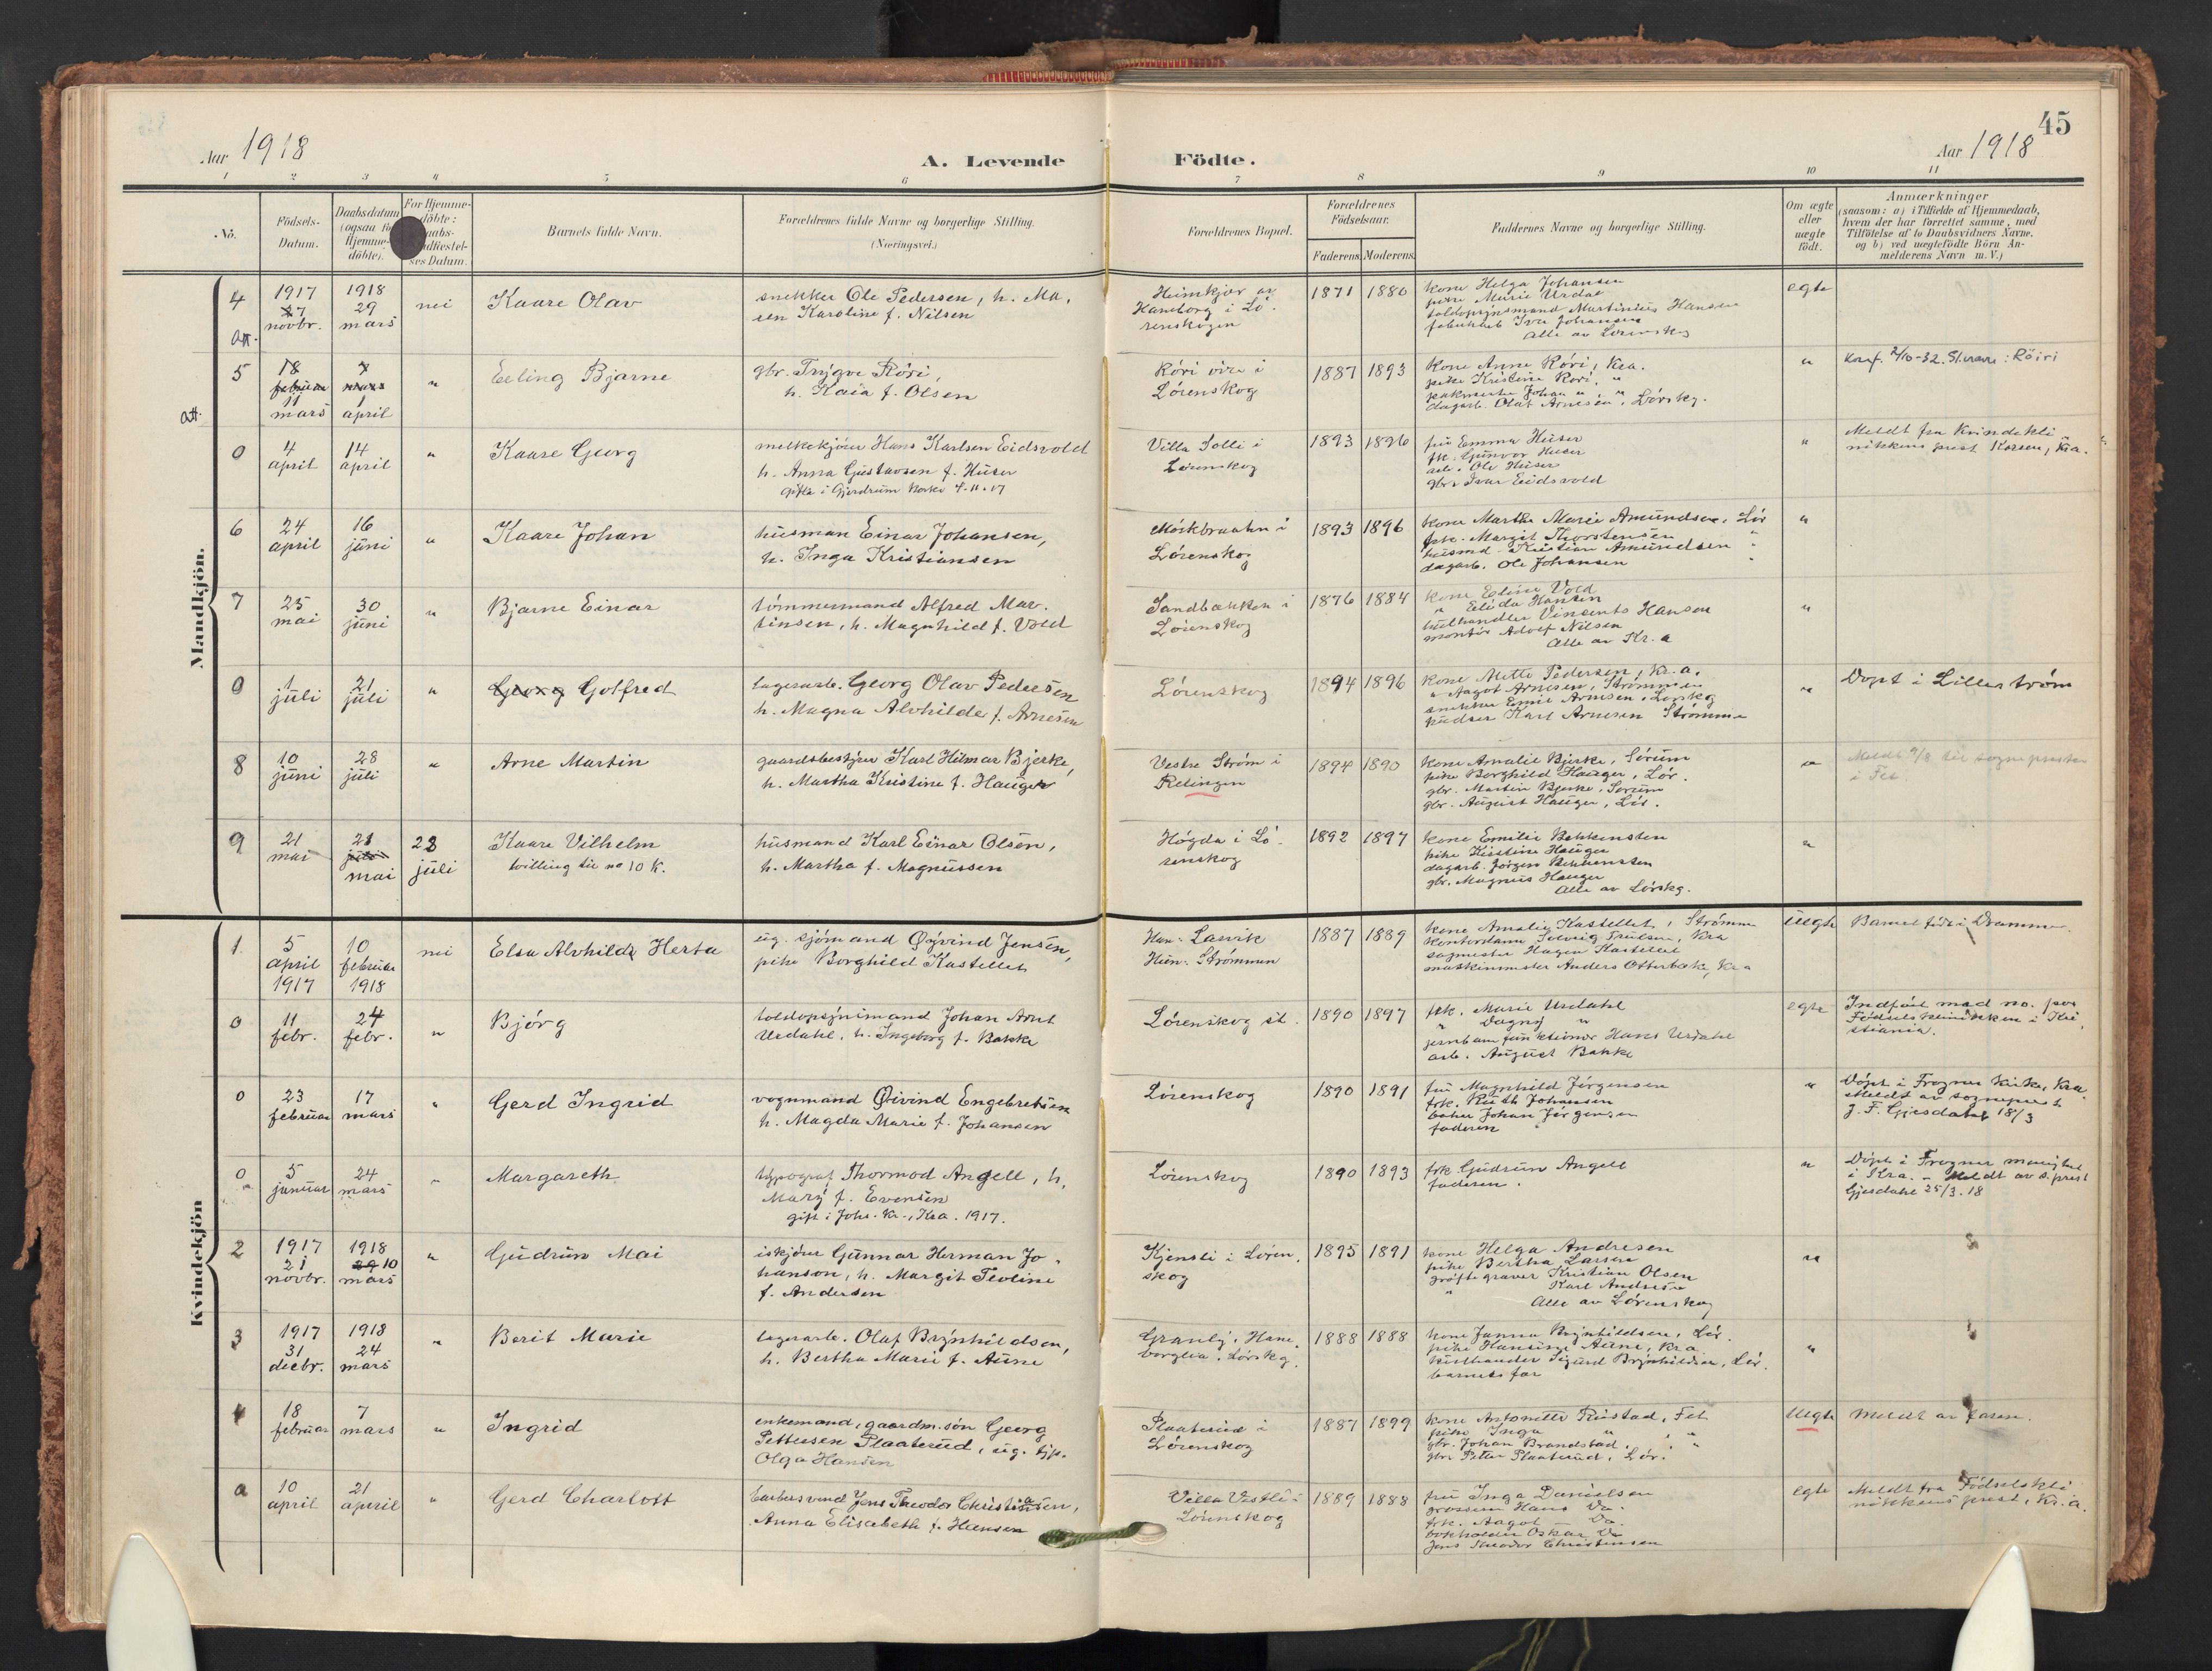 45
Aar 1918
A. Levende Födte.
Aar 1918
1 2 3 4 5 6 7 8 9 10 11
No.
Födsels-
Datum.
Daabsdatum
(ogsaa for
Hjemme-
döbte).
For Hjemme-
döbte:
ses Datum.
Barnets fulde Navn.
Forældrenes fulde Navne og borgerlige Stilling.
(Næringsvei.)
Forældrenes Bopæl.
Forældrenes
Födselsaar.
Faderens Moderens
Faddernes Navne og borgerlige Stilling.
Om ægte
eller
uægte
födt.
Anmærkninger
(saasom: a) i Tilfælde af Hjemmedaab,
hvem der har forrettet samme, med
Tilföielse af to Daabsvidners Navne,
og b) ved uægtefödte Börn An-
melderens Navn m. V.)
Mandkjön.
4
1917
27
novbr.
1918
29
mars
nei
Kaare Olav
snekker Ole Pedersen, h. Ma,
ren Karoline f. Nilsen
Heimkjær av
Haneborg i Lø-
renskogen
1871 1880
kone Helga Johansen
pike Marie Urdal
toldopsynsmand Martinius Hansen
fabrikarb Iver Johansen
Alle av Lørenskog
egte
att.
5
18
februar
11
mars
7
mars
1
april
"
Erling Bjarne
gbr. Trygve Røri,
h. Kaia f. Olsen
Røri øvre i
Lørenskog
1887 1893
Kone Anne Røri, Kra.
pike Kristine Røri, "
Johan " , "
dagarb. Olaf Arnesen, Lørskg.
"
Konf. 2/10-32. Skrevne: Röiri
att.
0
4
april
14
april
"
Kaare Georg
melkekjører Hans Karlsen Eidsvold
h. Anna Gustavsen f. Huser
gifte i Gjerdrum kirke 4-11-17
Villa Solli i
Lørenskog
1893 1896
fru Emma Huser
frk. Gunvor Huser
arb. Ole Huser
gbr. Ivar Eidsvold
"
Meldt fra Kvindekli
nikkens prest Korsen, Kra.
6
24
april
16
juni
"
Kaare Johan
husman Einar Johansen,
h. Inga Kristiansen
Mørkbraatn i
Lørenskog
1893 1896
kone Marthe Marie Amundsen, Lør
frk. Margit Thorstensen "
husmd. Kristian Amundsen "
dagarb. Ole Johansen "
"
7
25
mai
30
juni
"
Bjarne Einar
tømmermand Alfred Mar-
tinsen, h. Magnhild f. Vold
Sandbakken i
Lørenskog
1876 1884
kone Eline Vold
" Elida Hansen
kulhandler Vincents Hansen
montør Adolf Nilsen
Alle av Kr.a
"
0
1
juli
21
juli
"
Georg Golfred
lagerarb. Georg Olav Pedersen
h. Magna Alvhilde f. Arnesen
Lørenskog
1894 1896
kone Mette Pedersen, Kr.a.
" Aagot Arnesen, Strømmen
snekker Emil Arnesen, Lørskg
pudser Karl Arnesen Strømmen
"
Døpt i Lillestrøm
8
10
juni
28
juli
"
Arne Martin
gaardsbestyrer Karl Hilmar Bjerke,
h. Martha Kristine f. Hauger
Vestre Strøm i
Relingen
1894 1890
kone Amalie Bjerke, Sørum
pike Borghild Hauger, Lør.
gbr. Martin Bjerke, Sørum
gbr. August Hauger, Lør.
"
Meldt 9/8 til sognepresten
i Fet.
9
21
mai
21
juli
mai
28
juli
Kaare Vilhelm
tvilling til no 10 K.
husmand Karl Einar Olsen,
h. Martha f. Magnussen
Høgda i Lø-
renskog
1892 1897
kone Emilie Bekkensten
pike Kristine Hauger
dagarb. Jørgen Bekkensten
gbr. Magnus Hauger
Alle av Lørskg.
"
Kvindekjön
1
5
april
1917
10
februar
1918
nei
Elsa Alvhilde Herta
ug. sjømand Øyvind Jensen,
pike Borghild Kastellet
Han: Larvik
Hun: Strømmen
1887 1889
kone Amalie Kastellet, Strømmen
kontordame Solveig Poulsen, Kra
sagmester Hagen Kastellet
maskinmester Anders Otterbæk, Kra
Uegte
Barnet født i Drammen.
0
11
febr.
24
febr.
"
Bjørg
toldopsynsmand Johan Arnt
Urdahl, h. Ingeborg f. Bakke
Lørenskog st.
1890 1897
frk. Marie Urdahl
" Dagny "
jernbanefunktionær Hans Urdahl
arb. August Bakke
egte
Indført med no. fra
Fødselsklinikken i Kri-
stiania.
0
23
februar
17
mars
"
Gerd Ingrid
vognmand Øivind Engebretsen
h. Magda Marie f. Johansen
Lørenskog
1890 1891
fru Magnhild Jørgensen
frk. Ruth Johansen
baker Johan Jørgensen
faderen
"
Døpt i Frogner kirke, Kra.
Meldt av sogneprest
J. F. Gjesdahl 18/3
0
5
januar
24
mars
"
Margareth
typograf Thormod Angell, h.
Mary f. Evensen
gift i Johs. kr., Kra. 1917.
Lørenskog
1890 1893
frk. Gudrun Angell
faderen.
"
Døpt i Frogner menighet
i Kra. - Meldt av s.prest
Gjesdahl 25/3.18
2
1917
21
novbr.
1918
29 10
mars
"
Gudrun Mai
iskjører Gunnar Herman Jo-
hanson, h. Margit Teoline
f. Andersen
Kjensli i Løren,
skog
1895 1891
kone Helga Andresen
pike Bertha Larsen
grøftegraver Kristian Olsen
" Karl Andresen
Alle av Lørenskog
"
3
1917
31
decbr.
1918
24
mars
"
Berit Marie
lagerarb. Olaf Brynhildsen,
h. Bertha Marie f. Aune
Granly, Hane,
borglia, Lørskg.
1888 1888
kone Janna Brynhildsen, Lør.
pike Hansine Aune, Kra
Sigurd Brynhildsen, Lør.
barnets far
"
4
18
februar
7
mars
"
Ingrid
enkemand, gaardm.søn Georg
Pettersen Plaaterud, ug. tjp.
Olga Hansen
Plaaterud i
Lørenskog
1887 1899
kone Antonette Rustad, Fet
pike Inga " , "
gbr. Johan Brandstad, "
gbr Petter Plaaterud, Lør.
Uegte
Meldt av faren.
0
10
april
21
april
"
Gerd Charlott
barbersvend Jens Theodor Christiansen,
Anna Elisabeth f. Hansen
Villa Vestli i
Lørenskog
1889 1888
fru Inga Danielsen
grosserer Hans Do.
frk. Aagot - Do.
bokholder Oskar Do
Jens Theodor Christensen
egte
Meldt fra Fødselskli
nikkens prest, Kr.a.